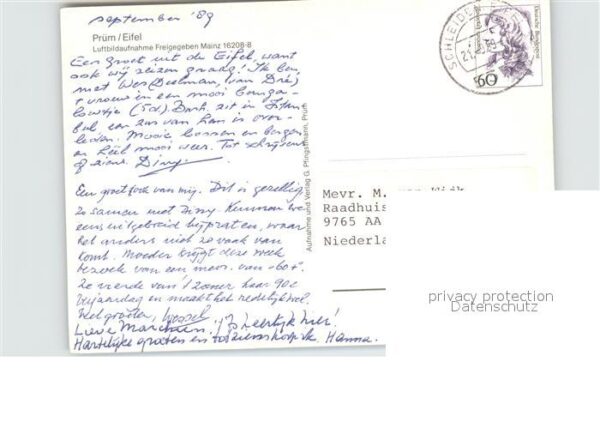 september '89
Prüm / Eifel
Luftbildaufnahme Freigegeben Mainz 16208-8
Een Groet uit de Eifel, want
ook wij reizen graag! Ik ben
met Wes (Deelman, van Dré)
+ vrouw in een mooi bunga-
lowtje (5d). Dark zit in Istan
bul, een zus van Han is over-
leden. Mooie bossen en bergen
en héél mooi weer. Tot schrijvens
of ziens. Diny.
Een groet ook van mij. Dit is gezellig
zo samen met Diny. Kunnen we
eens uitgebreid bijpraten, waar
het anders niet zo vaak van
komt. Moeder krijgt deze week
bezoek van een mevr. van 60+.
Ze vierde van 't zomer haar 90e
verjaardag en maakt het redelijk wel.
Veel groeten, Wessel
Lieve Marchien. 't Is heerlijk hier!
Hartelijke groeten en tot ziens hoop ik. Hanna.
Aufnahme und Verlag G. Pfingstmann, Prüm
SCHLEIDEN
Deutsche Bundespost
60
Mevr. M. van Wijk
Raadhuis
9765 AA
Niederla
privacy protection
Datenschutz